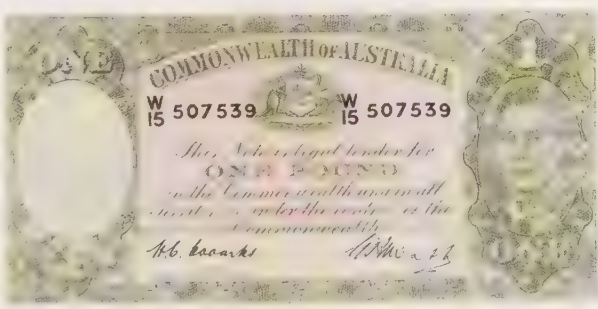 ONE
COMMONWEALTH OF AUSTRALIA
W/15 507539 W/15 507539
This Note is legal tender for
ONE POUND
in the Commonwealth and in all
under the of the
Commonwealth